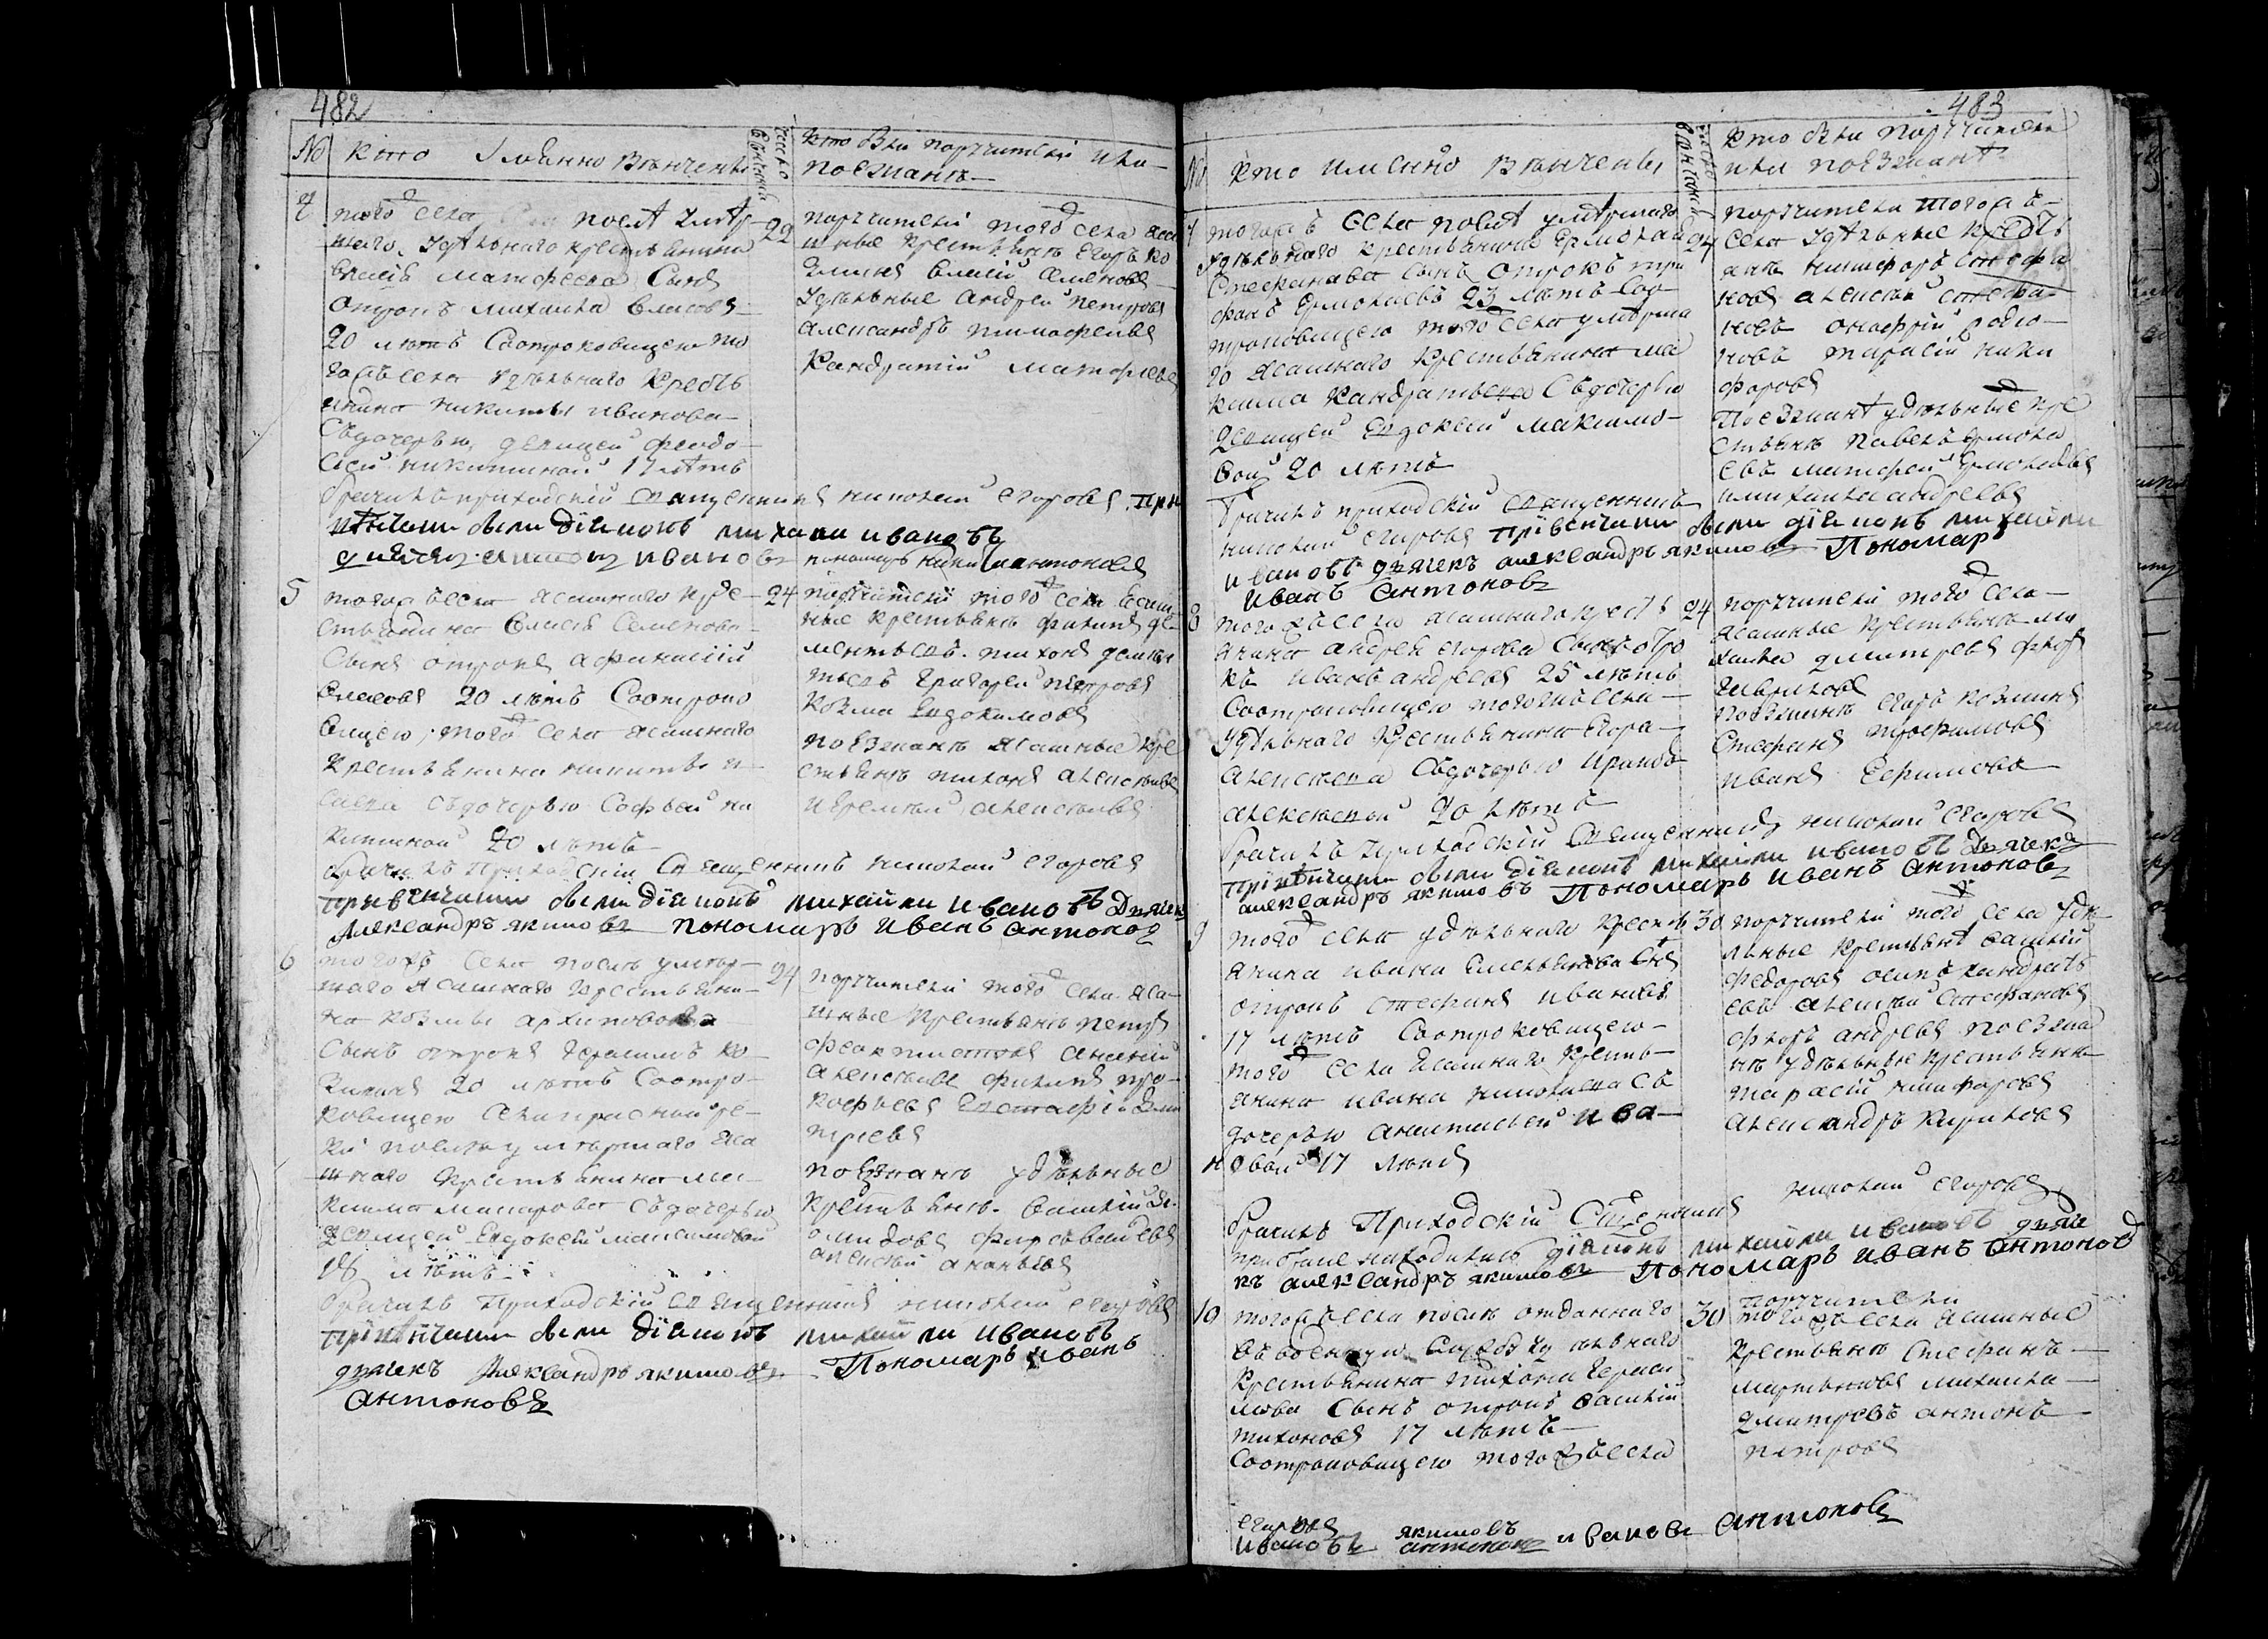 482
№ кто Имѣнно Вѣнчены
число венчания
кто были поручители или
поезжанѣ
4 того села после умер
шаго удѣльнаго крестьянина
Власа матфеева Сынъ
отрокъ михаила власовъ
20 лѣтъ Соотроковицею то
гожъ села удѣльнаго кресть
янина никиты иванова
Съдочерью девицей феодо
сей никитиной 17 летъ
22
поручители того села ясаш
шные крестьянѣ Егоръ ко
зминъ власій семеновъ
удѣльные андрей петровъ
александръ тимофеивъ
Кандратій матфиевъ
бракъ приходскій священникъ николай егоровъ при
венчании были діаконъ михаил ивановъ
ивановъ пономарь антоновъ
5 тогожъ села ясашнаго кре
стьянина власа Семенова
Сынъ отрокъ афанасій
власовъ 20 лѣтъ Соотроко
вицею, того села ясашнаго
крестьянина никиты
Съдочерью Софьей ни
китиной 20 лѣтъ
24
поручители того села ясаш
ные крестьянѣ филипъ де
ментьевъ тихонъ демен
тьевъ григорей петровъ
козма Евдокимовъ
поезжанѣ ясашные кре
стьянѣ тихонъ алексеивъ
и Еремѣй алексеивъ
бракъ Приходскій Священникъ николай егоровъ
привенчании были діаконъ михайла ивановъ Дьячекъ
Александръ якимовъ пономарь Иванъ антоновъ
6 тогожъ села после умер
шаго Ясашнаго крестьяни
на козмы архипова
Сынъ отрокъ герасимъ ко
зминъ 20 лѣтъ Соотро
ковицею Села красной ре
ки после умершаго яса
шнаго крестьянина ма
ксима макарова Съдочерью
девицей Евдокей максимовой
18 лѣтъ
24
поручители того села яса
шные крестьянѣ петръ
феоктистовъ ананій
алексеивъ филипъ про
кофьевъ Евстафій Дми
триевъ
поезжанѣ удѣльные
крестьянѣ василій Ди
омидовъ
алексей ананьевъ
бракъ Приходскій священникъ николай егоровъ
привенчании были діаконъ михайла ивановъ
дьячекъ Александръ якимовъ Пономарь иванъ
антоновъ
483
№ кто именно вѣнчены
число вѣнчания
кто были поручители
или поезжанѣ
7 тогожъ села после умершаго
удѣльнаго крестьянина Ермолая
Стефанова Сынъ отрокъ три
фонъ Ермолаевъ 23 лѣтъ Соо
троковицею того села умерша
го ясашнаго крестьянина ма
ксима кандратьева Съдочерью
девицей Евдокеей максимо
вой 20 лѣтъ
24
поручители тогожъ
села удѣльные кресть
янѣ никифоръ стефа
новъ алексѣй стефа
новъ онофрій родио
новъ тарасій ники
форовъ
Поезжанѣ удѣльные кре
стьянѣ павелъ ермола
евъ матфей Ермолаевъ
и михаила андреевъ
бракъ приходскій священникъ
николай егоровъ привенчании были діаконъ михайла
ивановъ дьячекъ александръ якимовъ Пономарь
иванъ антоновъ
8 тогожъ села ясашнаго кресть
янина андрея егорова Сынъ отро
къ иванъ андреевъ 25 лѣтъ
Соотроковицею тогожъ села
удѣльнаго крестьянина Егора
алексеева Съдочерью
алексеевой 20 лѣтъ
24
поручители того села
ясашные крестьянѣ ми
хаила дмитревъ флоръ
гавриловъ
поезжанѣ егоръ козминъ
Стефанъ трофимовъ
иванъ Ефимовъ
бракъ приходскій священникъ николай егоровъ
привенчании были діаконъ михайла ивановъ дьячекъ
александръ якимовъ Пономарь иванъ антоновъ
9 того села удѣльнаго крестья
янина ивана Емельянова Сынъ
отрокъ стефанъ ивановъ
17 лѣтъ Соотроковицею
того села ясашнаго кресть
янина ивана николаева съ
дочерью анитисьей ива
новой 17 летъ
30
поручители того села удѣ
льные крестьянѣ василій
федоровъ осипъ кандрать
евъ алексѣй Стефановъ
флоръ андреевъ поезжа
нѣ удѣльные крестьянѣ
тарасій никифоровъ
александръ кириловъ
бракъ Приходскій Священникъ николай егоровъ
при браке находились діаконъ михайла ивановъ дьяче
къ александръ якимовъ Пономарь иванъ антоновъ
10 тогожъ села после отданнаго
въ военную службу удѣльнаго
крестьянина тихона гераси
мова Сынъ отрокъ василій
тихоновъ 17 лѣтъ
Соотроковицею тогожъ села
30
поручители
тогожъ села ясашные
крестьянѣ Стефанъ
мартыновъ михаила
дмитревъ антонъ
петровъ
егоровъ
ивановъ якимовъ антоновъ ивановъ антоновъ